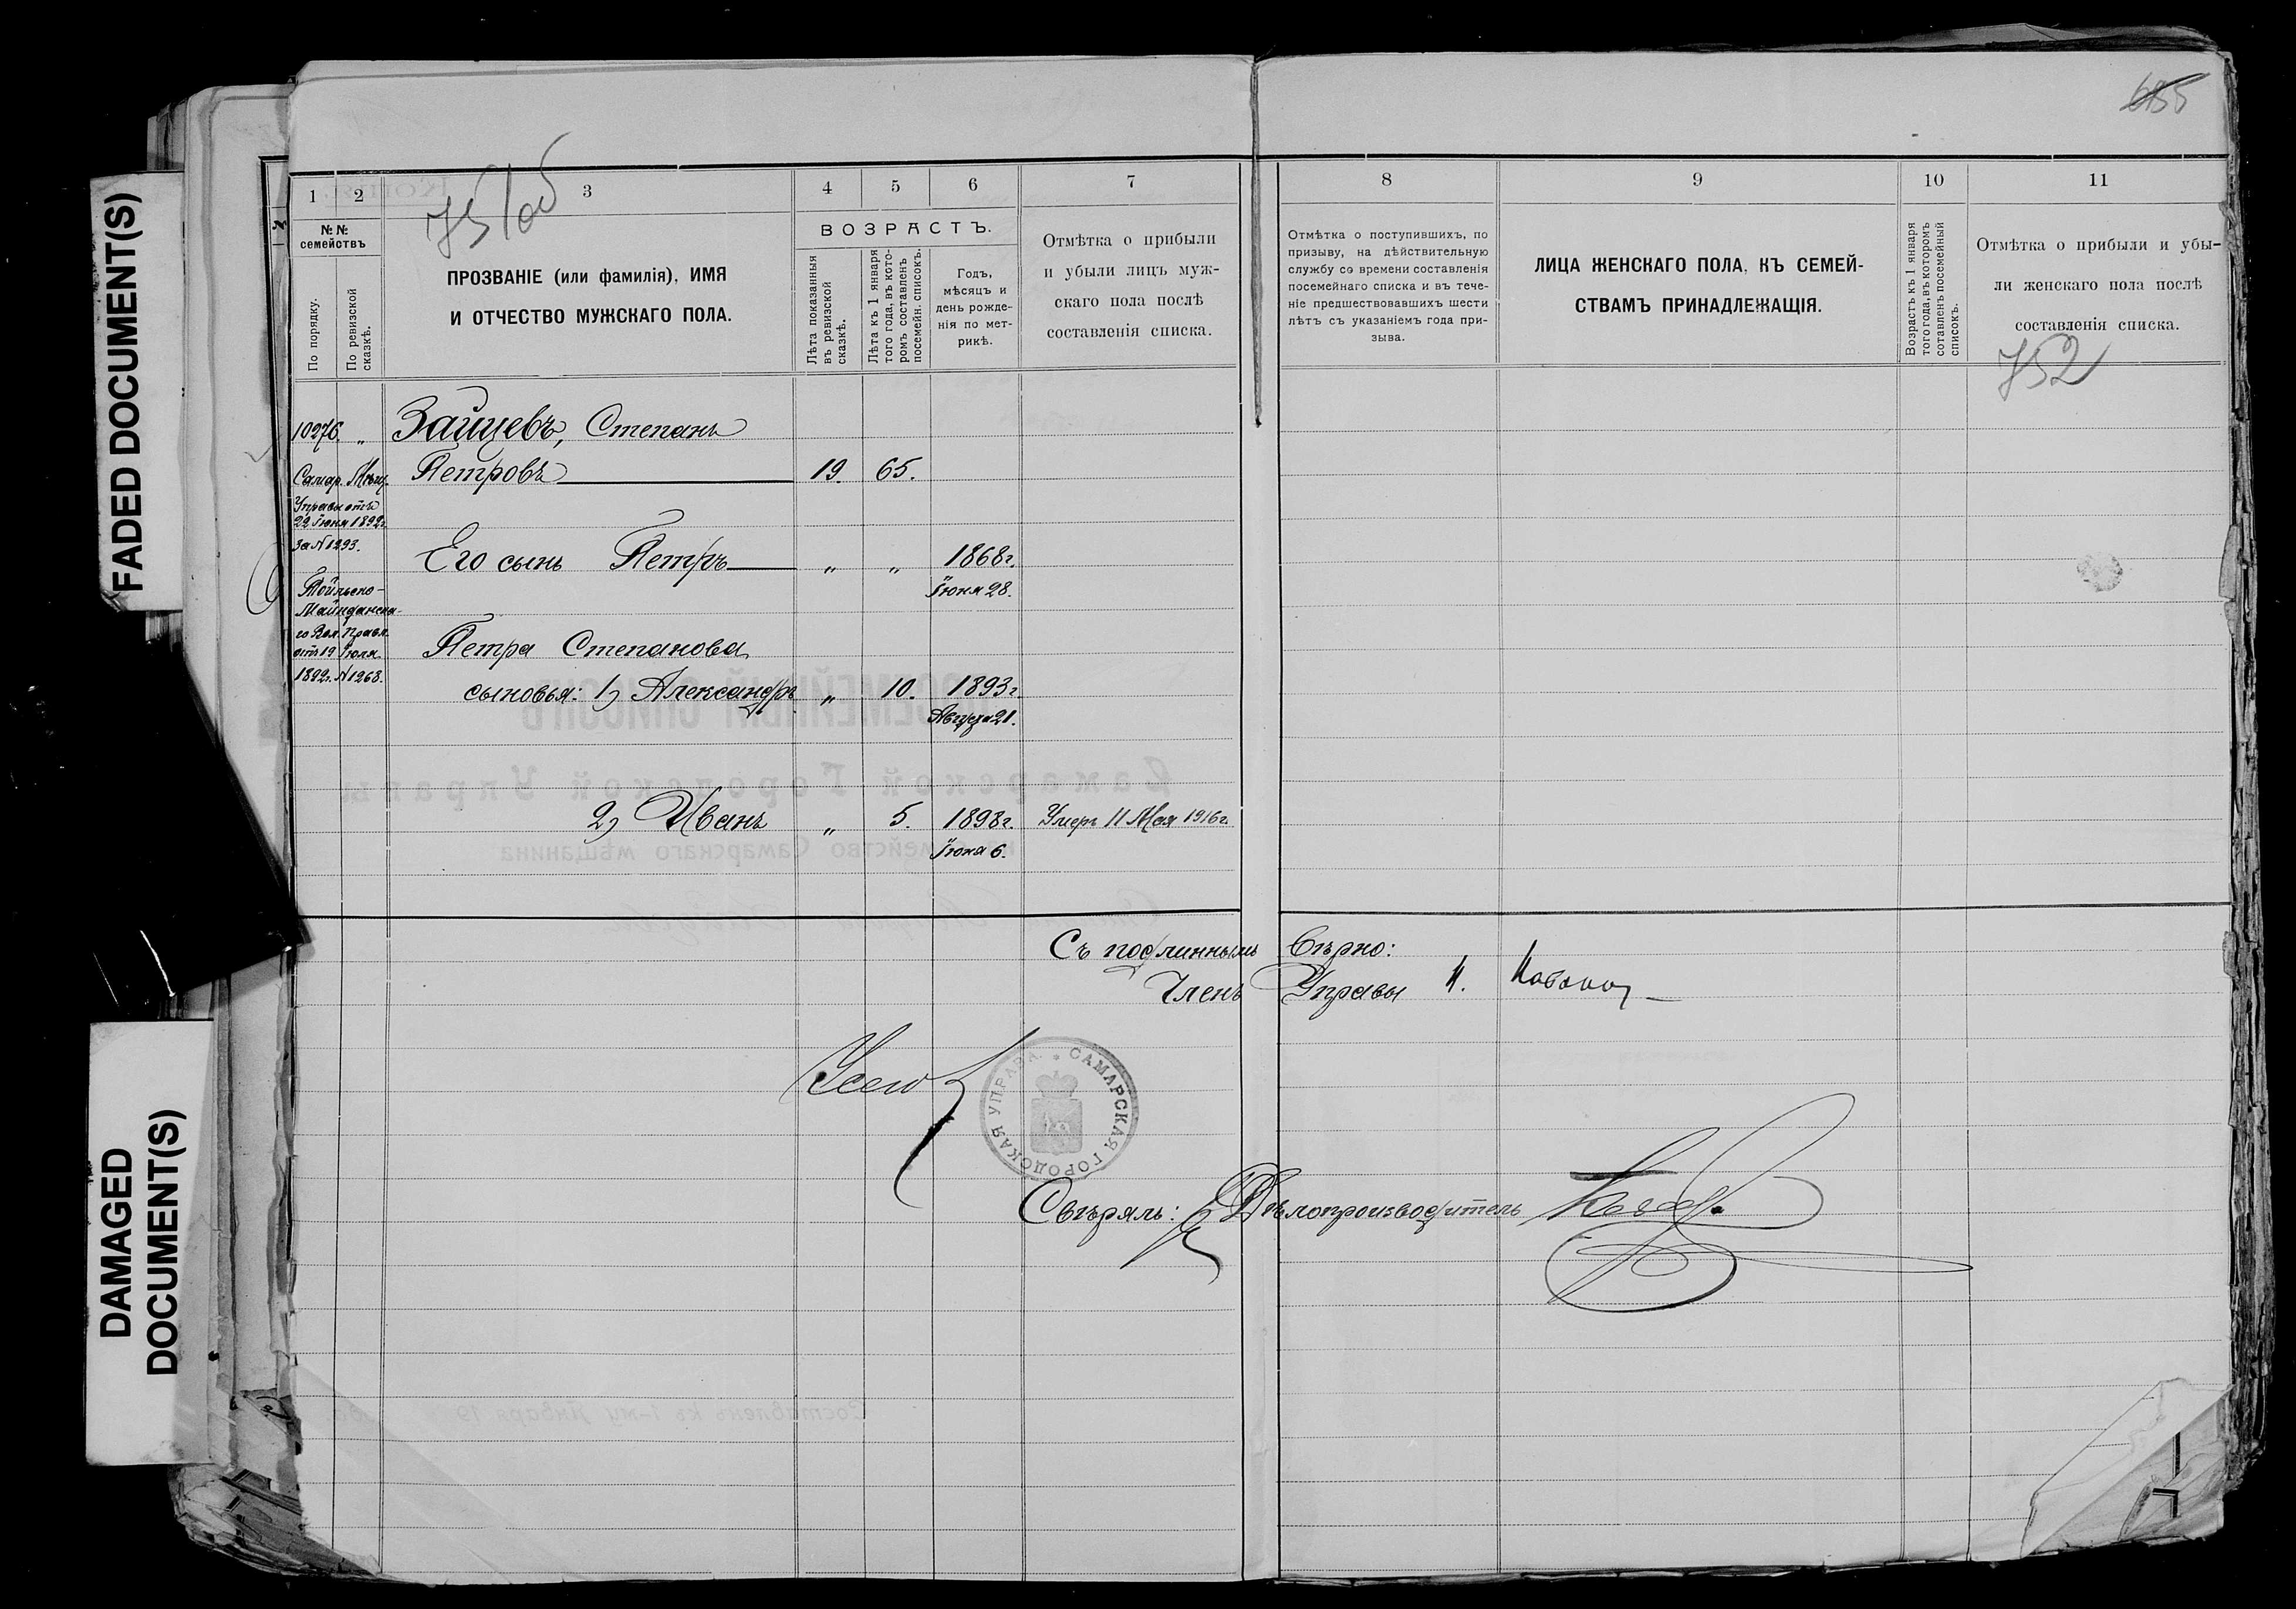 655
751об
1
2
3
4
5
6
7
8
9
10
11
№№ семействъ
По порядку.
По ревизской сказкѣ.
ПРОЗВАНІЕ (или фамилія), ИМЯ
И ОТЧЕСТВО МУЖСКАГО ПОЛА.
ВОЗРАСТЪ.
Лѣта показанныя
въ ревизской
сказкѣ.
Лѣта къ 1 января
того года, въ кото-
ромъ составленъ
посемейн. списокъ.
Годъ,
мѣсяцъ и
день рожде-
нія по мет-
рикѣ.
Отмѣтка о прибыли
и убыли лицъ муж-
скаго пола послѣ
составленія списка.
Отмѣтка о поступившихъ, по
призыву, на дѣйствительную
службу со времени составленія
посемейнаго списка и въ тече-
ніе предшествовавшихъ шести
лѣтъ съ указаніемъ года при-
зыва.
ЛИЦА ЖЕНСКАГО ПОЛА, КЪ СЕМЕЙ-
СТВАМЪ ПРИНАДЛЕЖАЩІЯ.
Возрастъ къ 1 января
того года, въ которомъ
составленъ посемейный
списокъ.
Отмѣтка о прибыли и убы-
ли женскаго пола послѣ
составленія списка.
752
10276. „ Зайцевъ, Степанъ
Петровъ 19. 65.
Самар. Мѣщ.
Управы отъ
22 Іюня 1892г.
За №1293.
Его сынъ Петръ „ „ 1868г.
Іюня 28.
Майданска-
го Вол. Правл.
отъ 19 Іюля
1892г. №1268.
Петра Степанова
сыновья: 1) Александръ „ 10. 1893г.
Августа 21.
2) Иванъ „ 5. 1898г. Умеръ 11 Мая 1916г.
Іюня 6.
Съ подлиннымъ вѣрно:
Членъ Управы
САМАРСКАЯ ГОРОДСКАЯ УПРАВА
Свѣрялъ: Дѣлопроизводитель
FADED DOCUMENT(S)
DAMAGED
DOCUMENT(S)